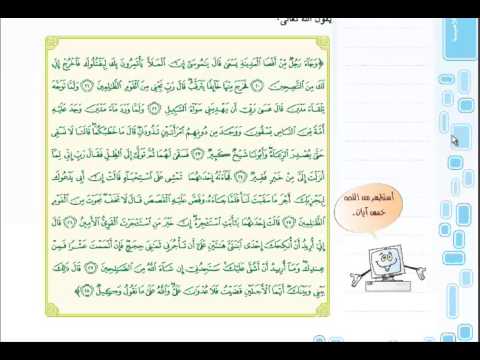 يقول الله تعالى:
﴿وَجَآءَ رَجُلٌ مِّنْ أَقْصَا ٱلْمَدِينَةِ يَسْعَىٰ قَالَ يَٰمُوسَىٰٓ إِنَّ ٱلْمَلَأَ يَأْتَمِرُونَ بِكَ لِيَقْتُلُوكَ فَٱخْرُجْ إِنِّي
لَكَ مِنَ ٱلنَّٰصِحِينَ ﴿٢٠﴾ فَخَرَجَ مِنْهَا خَآئِفًا يَتَرَقَّبُ قَالَ رَبِّ نَجِّنِي مِنَ ٱلْقَوْمِ ٱلظَّٰلِمِينَ ﴿٢١﴾ وَلَمَّا تَوَجَّهَ
تِلْقَآءَ مَدْيَنَ قَالَ عَسَىٰ رَبِّيٓ أَن يَهْدِيَنِي سَوَآءَ ٱلسَّبِيلِ ﴿٢٢﴾ وَلَمَّا وَرَدَ مَآءَ مَدْيَنَ وَجَدَ عَلَيْهِ
أُمَّةً مِّنَ ٱلنَّاسِ يَسْقُونَ وَوَجَدَ مِن دُونِهِمُ ٱمْرَأَتَيْنِ تَذُودَانِ قَالَ مَا خَطْبُكُمَا قَالَتَا لَا نَسْقِي
حَتَّىٰ يُصْدِرَ ٱلرِّعَآءُ وَأَبُونَا شَيْخٌ كَبِيرٌ ﴿٢٣﴾ فَسَقَىٰ لَهُمَا ثُمَّ تَوَلَّىٰٓ إِلَى ٱلظِّلِّ فَقَالَ رَبِّ إِنِّي لِمَآ
أَنزَلْتَ إِلَيَّ مِنْ خَيْرٍ فَقِيرٌ ﴿٢٤﴾ فَجَآءَتْهُ إِحْدَىٰهُمَا تَمْشِي عَلَى ٱسْتِحْيَآءٍ قَالَتْ إِنَّ أَبِي يَدْعُوكَ
لِيَجْزِيَكَ أَجْرَ مَا سَقَيْتَ لَنَا فَلَمَّا جَآءَهُ وَقَصَّ عَلَيْهِ ٱلْقَصَصَ قَالَ لَا تَخَفْ نَجَوْتَ مِنَ ٱلْقَوْمِ
ٱلظَّٰلِمِينَ ﴿٢٥﴾ قَالَتْ إِحْدَىٰهُمَا يَٰٓأَبَتِ ٱسْتَـْٔجِرْهُ إِنَّ خَيْرَ مَنِ ٱسْتَـْٔجَرْتَ ٱلْقَوِيُّ ٱلْأَمِينُ ﴿٢٦﴾ قَالَ
إِنِّيٓ أُرِيدُ أَنْ أُنكِحَكَ إِحْدَى ٱبْنَتَيَّ هَٰتَيْنِ عَلَىٰٓ أَن تَأْجُرَنِي ثَمَٰنِيَ حِجَجٍ فَإِنْ أَتْمَمْتَ عَشْرًا فَمِنْ
عِندِكَ وَمَآ أُرِيدُ أَنْ أَشُقَّ عَلَيْكَ سَتَجِدُنِيٓ إِن شَآءَ ٱللَّهُ مِنَ ٱلصَّٰلِحِينَ ﴿٢٧﴾ قَالَ ذَٰلِكَ
بَيْنِي وَبَيْنَكَ أَيَّمَا ٱلْأَجَلَيْنِ قَضَيْتُ فَلَا عُدْوَٰنَ عَلَيَّ وَٱللَّهُ عَلَىٰ مَا نَقُولُ وَكِيلٌ ﴿٢٨﴾﴾
أستظهر من
خمس آيات.